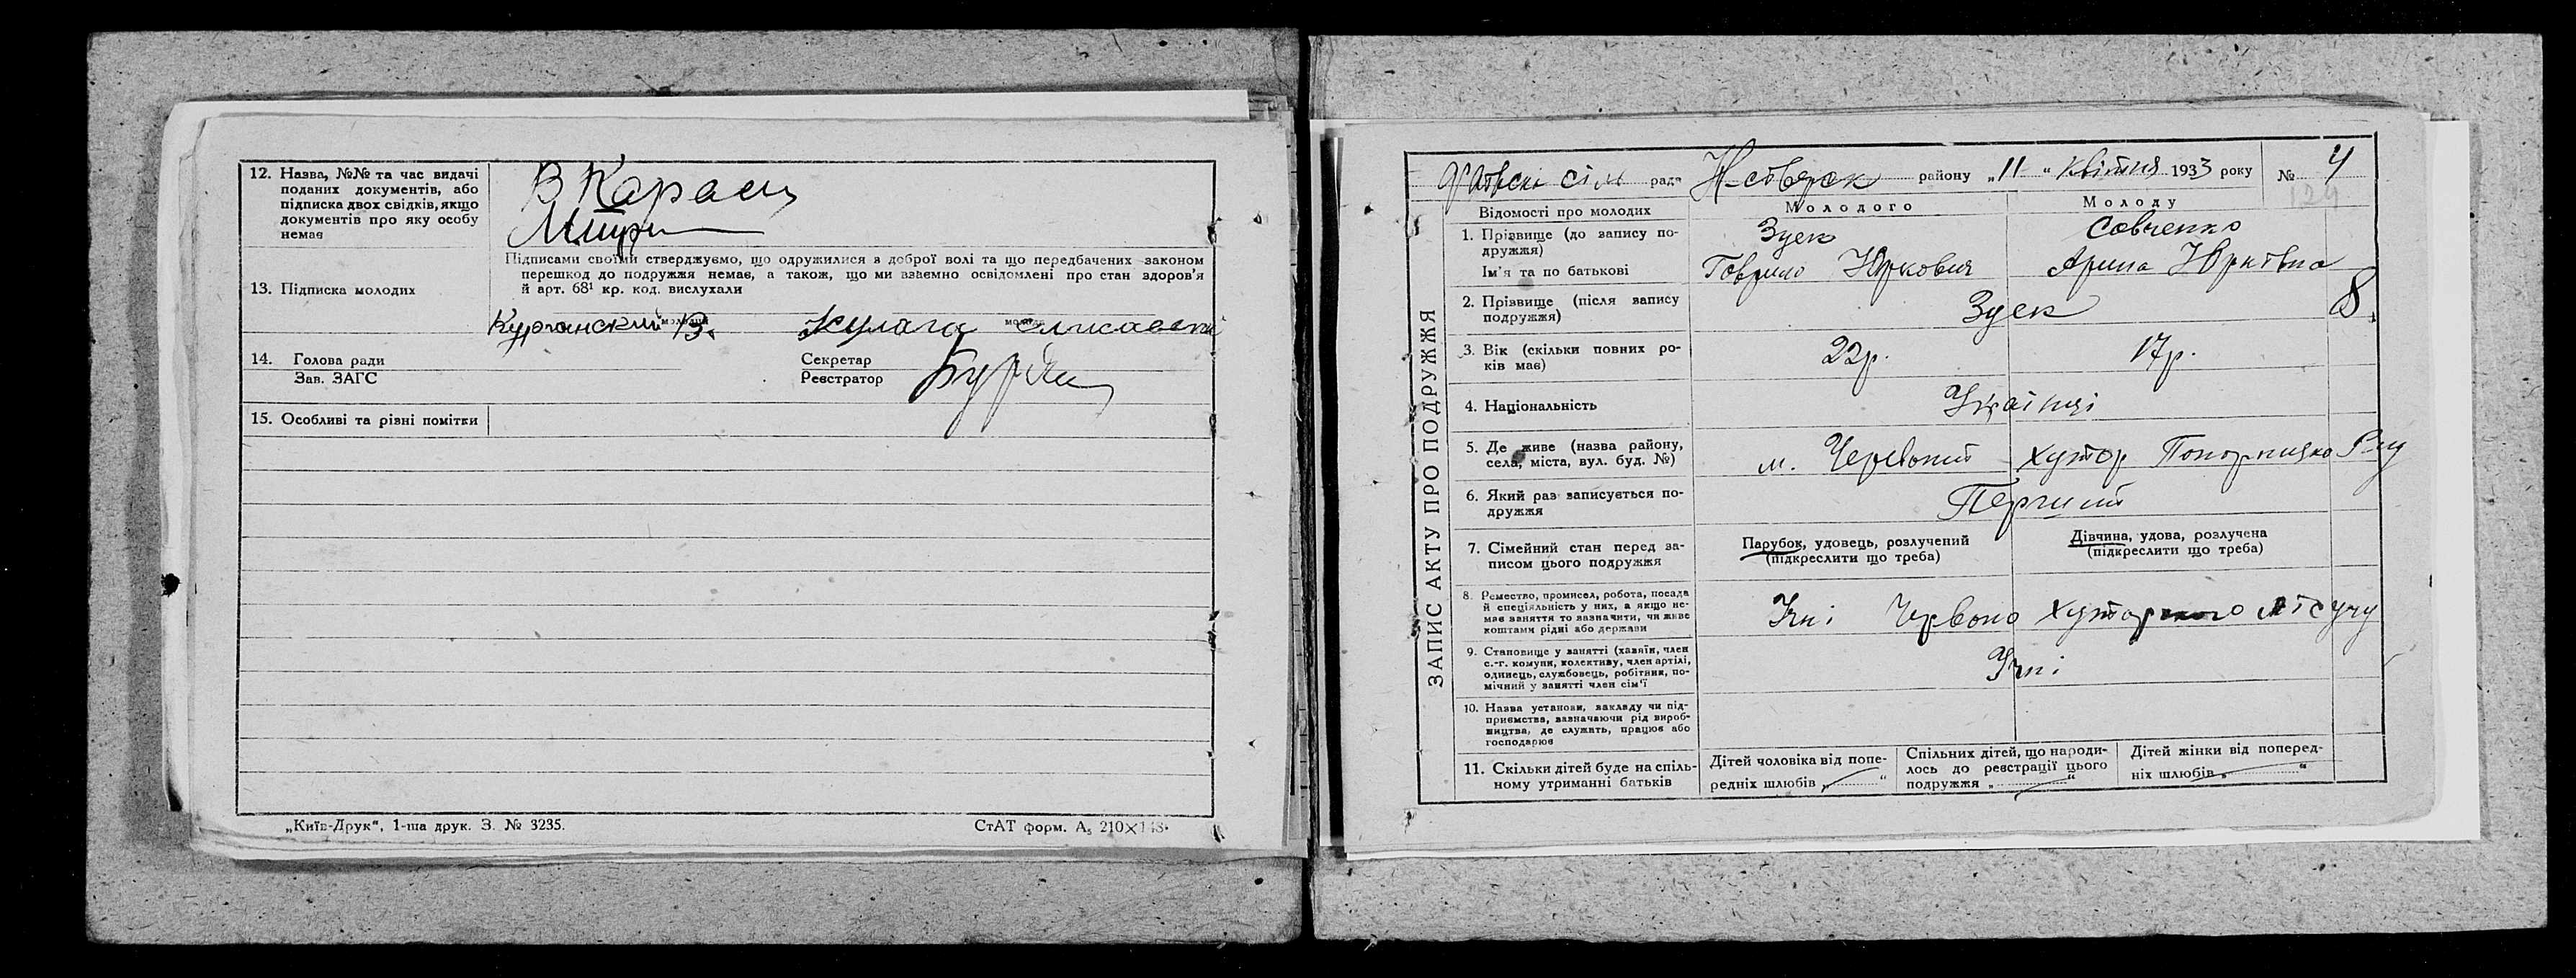 12. Назва, №№ та час видачі
поданих документів, або
підписка двох свідків, якщо
документів про яку особу
немає
В Карась
Підписами своїми стверджуємо, що одружилися з доброї волі та що передбачених законом
перешкод до подружжя немає, а також, що ми взаємно освідомлені про стан здоров'я
й арт. 68¹ кр. код. вислухали
13. Підписка молодих
Курганский В. Кулага
14. Голова ради
Зав. ЗАГС
Секретар
Реєстратор
15. Особливі та різні помітки
„Київ-Друк“, 1-ша друк. З. № 3235.
СтАТ форм. А₅ 210×148.
ЗАПИС АКТУ ПРО ПОДРУЖЖЯ
рада району „11“ квітня 1933 року № 4
124
Відомості про молодих
Молодого
Молоду
1. Прізвище (до запису по-
дружжя)
Зуек
Савченко
Ім'я та по батькові
Гаврило Юркович
Арина Юрківна
2. Прізвище (після запису
подружжя)
Зуек
8
3. Вік (скільки повних ро-
ків має)
22р.
17р.
4. Національність
Українці
5. Де живе (назва району,
села, міста, вул. буд. №)
м. Червоний хутор
6. Який раз записується по-
дружжя
Перший
7. Сімейний стан перед за-
писом цього подружжя
Парубок, удовець, розлучений
(підкреслити що треба)
Дівчина, удова, розлучена
(підкреслити що треба)
8. Ремество, промисел, робота, посада
й спеціяльність у них, а якщо не-
має заняття то зазначити, чи живе
коштами рідні або держави
Учні Червоно хуторского
9. Становище у занятті (хазяїн, член
с.-г. комуни, колективу, член артілі,
одинець, службовець, робітник, по-
мічний у занятті член сім'ї
Учні
10. Назва установи, закладу чи під-
приємства, зазначаючи рід вироб-
ництва, де служать, працює або
господарює
11. Скільки дітей буде на спіль-
ному утриманні батьків
Дітей чоловіка від попе-
редніх шлюбів „ “
Спільних дітей, що народи-
лось до реєстрації цього
подружжя „ “
Дітей жінки від поперед-
ніх шлюбів „ “